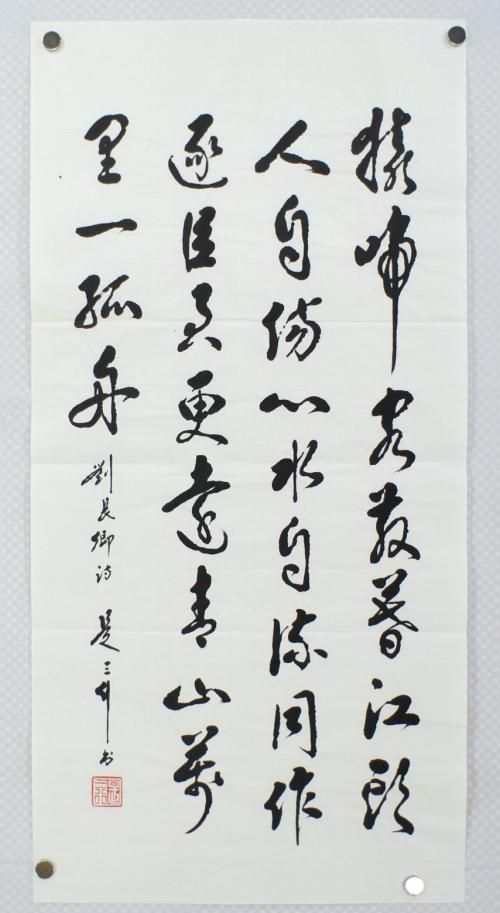 猿啼客散暮江頭
人自傷心水自流同作
逐臣君更遠青山萬
里一孤舟
劉長卿詩 書